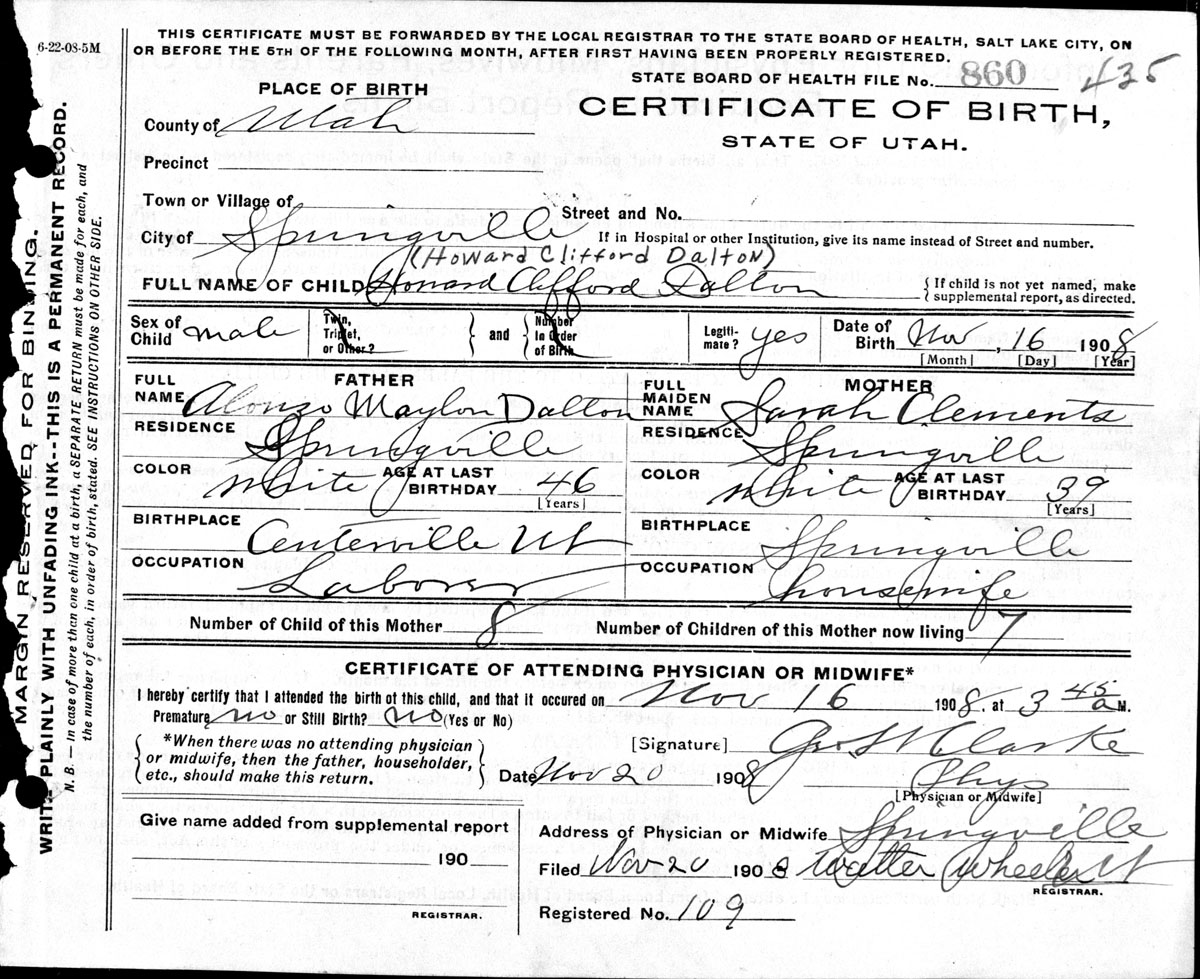 6-22-08-5M
THIS CERTIFICATE MUST BE FORWARDED BY THE LOCAL REGISTRAR TO THE STATE BOARD OF HEALTH, SALT LAKE CITY, ON
OR BEFORE THE 5TH OF THE FOLLOWING MONTH, AFTER FIRST HAVING BEEN PROPERLY REGISTERED.
STATE BOARD OF HEALTH FILE No. 860 435
PLACE OF BIRTH
CERTIFICATE OF BIRTH,
STATE OF UTAH.
County of Utah
Precinct
Town or Village of
Street and No.
City of Springville
If in Hospital or other Institution, give its name instead of Street and number.
(Howard Clifford Dalton)
FULL NAME OF CHILD Howard Clifford Dalton
{ If child is not yet named, make
supplemental report, as directed.
Sex of Child male
Twin, Triplet, or Other?
} and {
Number In Order of Birth
Legitimate? yes
Date of Birth Nov, 16 1908
[Month] [Day] [Year]
FATHER
FULL NAME Alonzo Maylon Dalton
RESIDENCE Springville
COLOR White AGE AT LAST BIRTHDAY 46
[Years]
BIRTHPLACE Centerville Ut
OCCUPATION Laborer
MOTHER
FULL MAIDEN NAME Sarah Clements
RESIDENCE Springville
COLOR White AGE AT LAST BIRTHDAY 39
[Years]
BIRTHPLACE Springville
OCCUPATION housewife
Number of Child of this Mother 8
Number of Children of this Mother now living 7
CERTIFICATE OF ATTENDING PHYSICIAN OR MIDWIFE*
I hereby certify that I attended the birth of this child, and that it occured on Nov 16 1908, at 3 45 a M.
Premature no or Still Birth? No (Yes or No)
{ *When there was no attending physician
or midwife, then the father, householder,
etc., should make this return. }
[Signature] Geo Clarke
Date Nov 20 1908
Phys
[Physician or Midwife]
Give name added from supplemental report
190
REGISTRAR.
Address of Physician or Midwife Springville
Filed Nov 20 1908 Walter Wheeler Ut
REGISTRAR.
Registered No. 109
MARGIN RESERVED FOR BINDING.
WRITE PLAINLY WITH UNFADING INK--THIS IS A PERMANENT RECORD.
N. B. — In case of more than one child at a birth, a SEPARATE RETURN must be made for each, and
the number of each, in order of birth, stated. SEE INSTRUCTIONS ON OTHER SIDE.